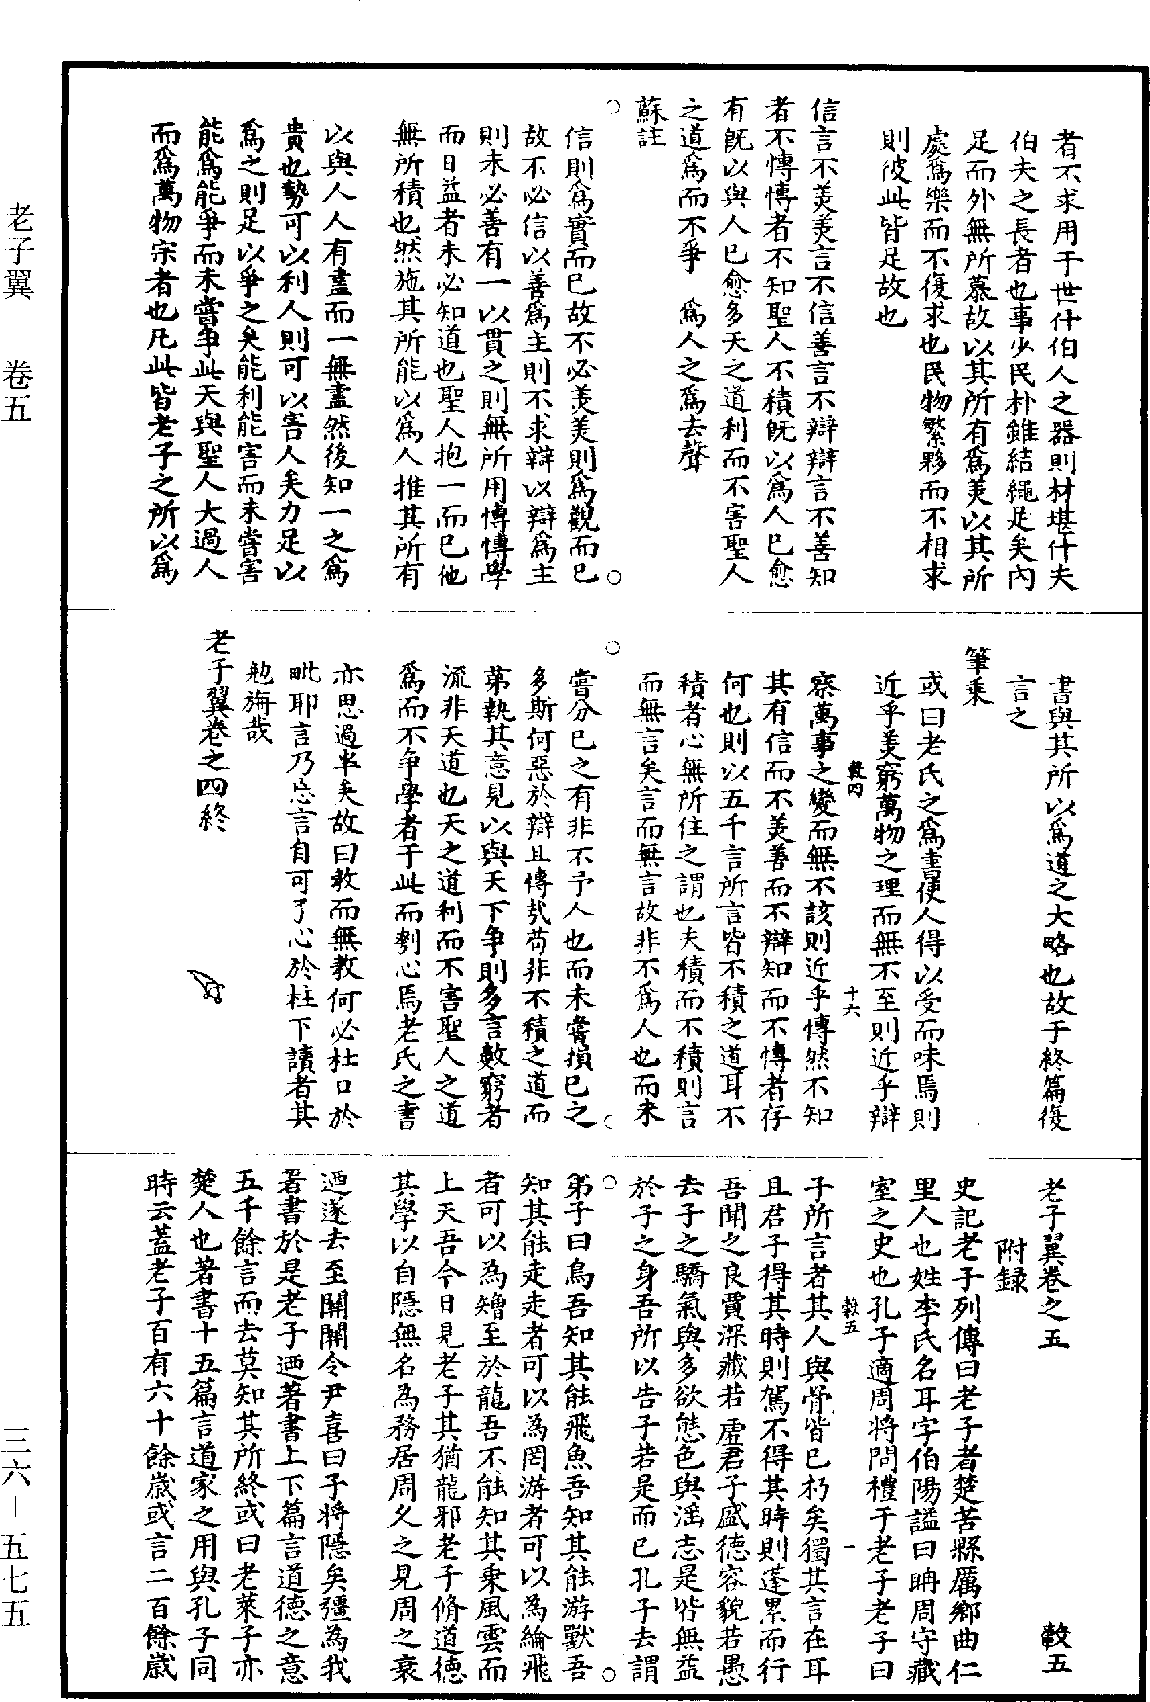 者不求用于世什伯人之器則材堪什夫
伯夫之長者也事少民朴雖結繩足矣內
足而外無所慕故以其所有爲美以其所
處爲樂而不復求也民物繁夥而不相求
則彼此皆足故也
信言不美美言不信善言不辯辯言不善知
者不博博者不知聖人不積旣以爲人已愈
有旣以與人已愈多天之道利而不害聖人
之道爲而不爭　爲人之爲去聲
蘇註
信則爲實而已故不必美美則爲觀而已
故不必信以善爲主則不求辯以辯爲主
則未必善有一以貫之則無所用博博學
而日益者未必知道也聖人抱一而已他
無所積也然施其所能以爲人推其所有
以與人人有盡而一無盡然後知一之爲
貴也勢可以利人則可以害人矣力足以
爲之則足以爭之矣能利能害而未嘗害
能爲能爭而未嘗爭此天與聖人大過人
而爲萬物宗者也凡此皆老子之所以爲
書與其所以爲道之大略也故于終篇復
言之
筆乘
或曰老氏之爲書使人得以受而味焉則
近乎美窮萬物之理而無不至則近乎辯
察萬事之變而無不該則近乎博然不知
其有信而不美善而不辯知而不博者存
何也則以五千言所言皆不積之道耳不
積者心無所住之謂也夫積而不積則言
而無言矣言而無言故非不爲人也而未
嘗分已之有非不予人也而未嘗損已之
多斯何惡於辯且博哉苟非不積之道而
第執其意見以與天下爭則多言數窮者
流非天道也天之道利而不害聖人之道
爲而不爭學者于此而刳心焉老氏之書
亦思過半矣故曰教而無教何必杜口於
毗耶言乃忘言自可了心於柱下讀者其
勉旃哉
老子翼卷之四終
老子翼卷之五　　　　　　　　　　㪅五
附録
史記老子列傳曰老子者楚苦縣厲鄉曲仁
里人也姓李氏名耳字伯陽謚曰聃周守藏
室之史也孔子適周將問禮于老子老子曰
子所言者其人與骨皆已朽矣獨其言在耳
且君子得其時則駕不得其時則蓬累而行
吾聞之良賈深藏若虛君子盛德容貌若愚
去子之驕氣與多欲態色與淫志是皆無益
於子之身吾所以告子若是而已孔子去謂
弟子曰鳥吾知其能飛魚吾知其能游獸吾
知其能走走者可以為罔游者可以為綸飛
者可以為矰至於龍吾不能知其乗風雲而
上天吾今日見老子其猶龍邪老子脩道德
其學以自隱無名為務居周久之見周之衰
迺遂去至關關令尹喜曰子將隱矣彊為我
著書於是老子迺著書上下篇言道德之意
五千餘言而去莫知其所終或曰老萊子亦
楚人也著書十五篇言道家之用與孔子同
時云蓋老子百有六十餘歲或言二百餘歲
老子翼　卷五
三六—五七五
十六
一